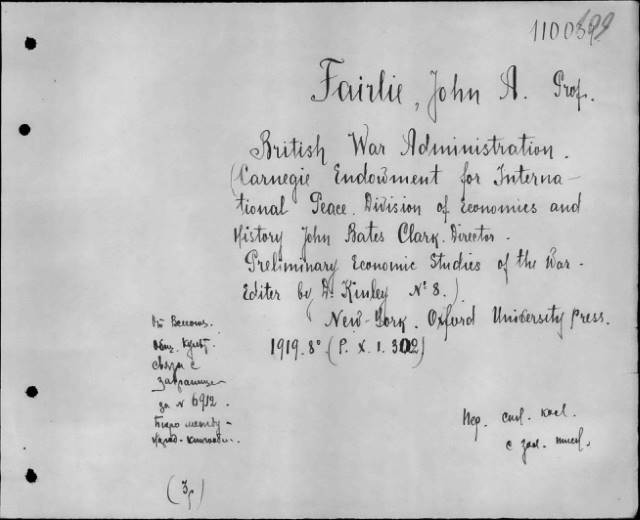 1100399
Fairlie, John A. Prof.
British War Administration.
(Carnegie Endowment for Interna-
tional Peace. Division of Economics and
History John Bates Clark. Director.
Preliminary Economic Studies of the War.
Editer by D. Kinley № 8.)
New-York. Oxford University press.
1919. 8° (P. X. 1. 302)
Общ. Культ.
связи с
заграницей
за № 6912.
Бюро между-
народ.
Пер.
с
(3